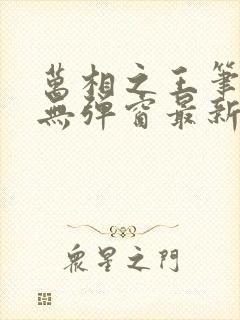 萬相之王筆
無彈窗最新
眾星之門